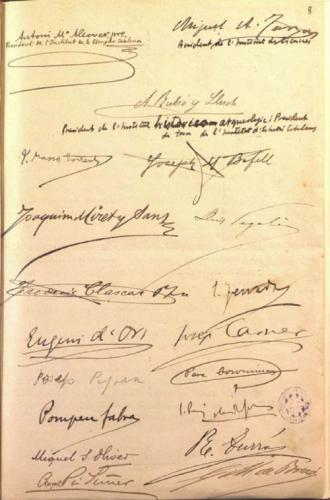 8
Antoni Mª Alcover, pre.
President de l'Institut de la Llengua Catalana
Miquel A. Fargas
President de l'Institut de Ciencies
A. Rubió y Lluch
President de l'Institut historicoarqueologic i President
de torn de l'Institut d'Estudis Catalans
J. Massó Torrents
Joseph M Bofill
Joaquim Miret y Sans
Lluis Segalà
Frederic Clascar
Eugeni d'Ors
Josep Carner
Josep Pijoan
Pere Coromines
Pompeu Fabra
J. Puig i Cadafalch
Miquel S Oliver
R. E. Turró
August Pi Suñer